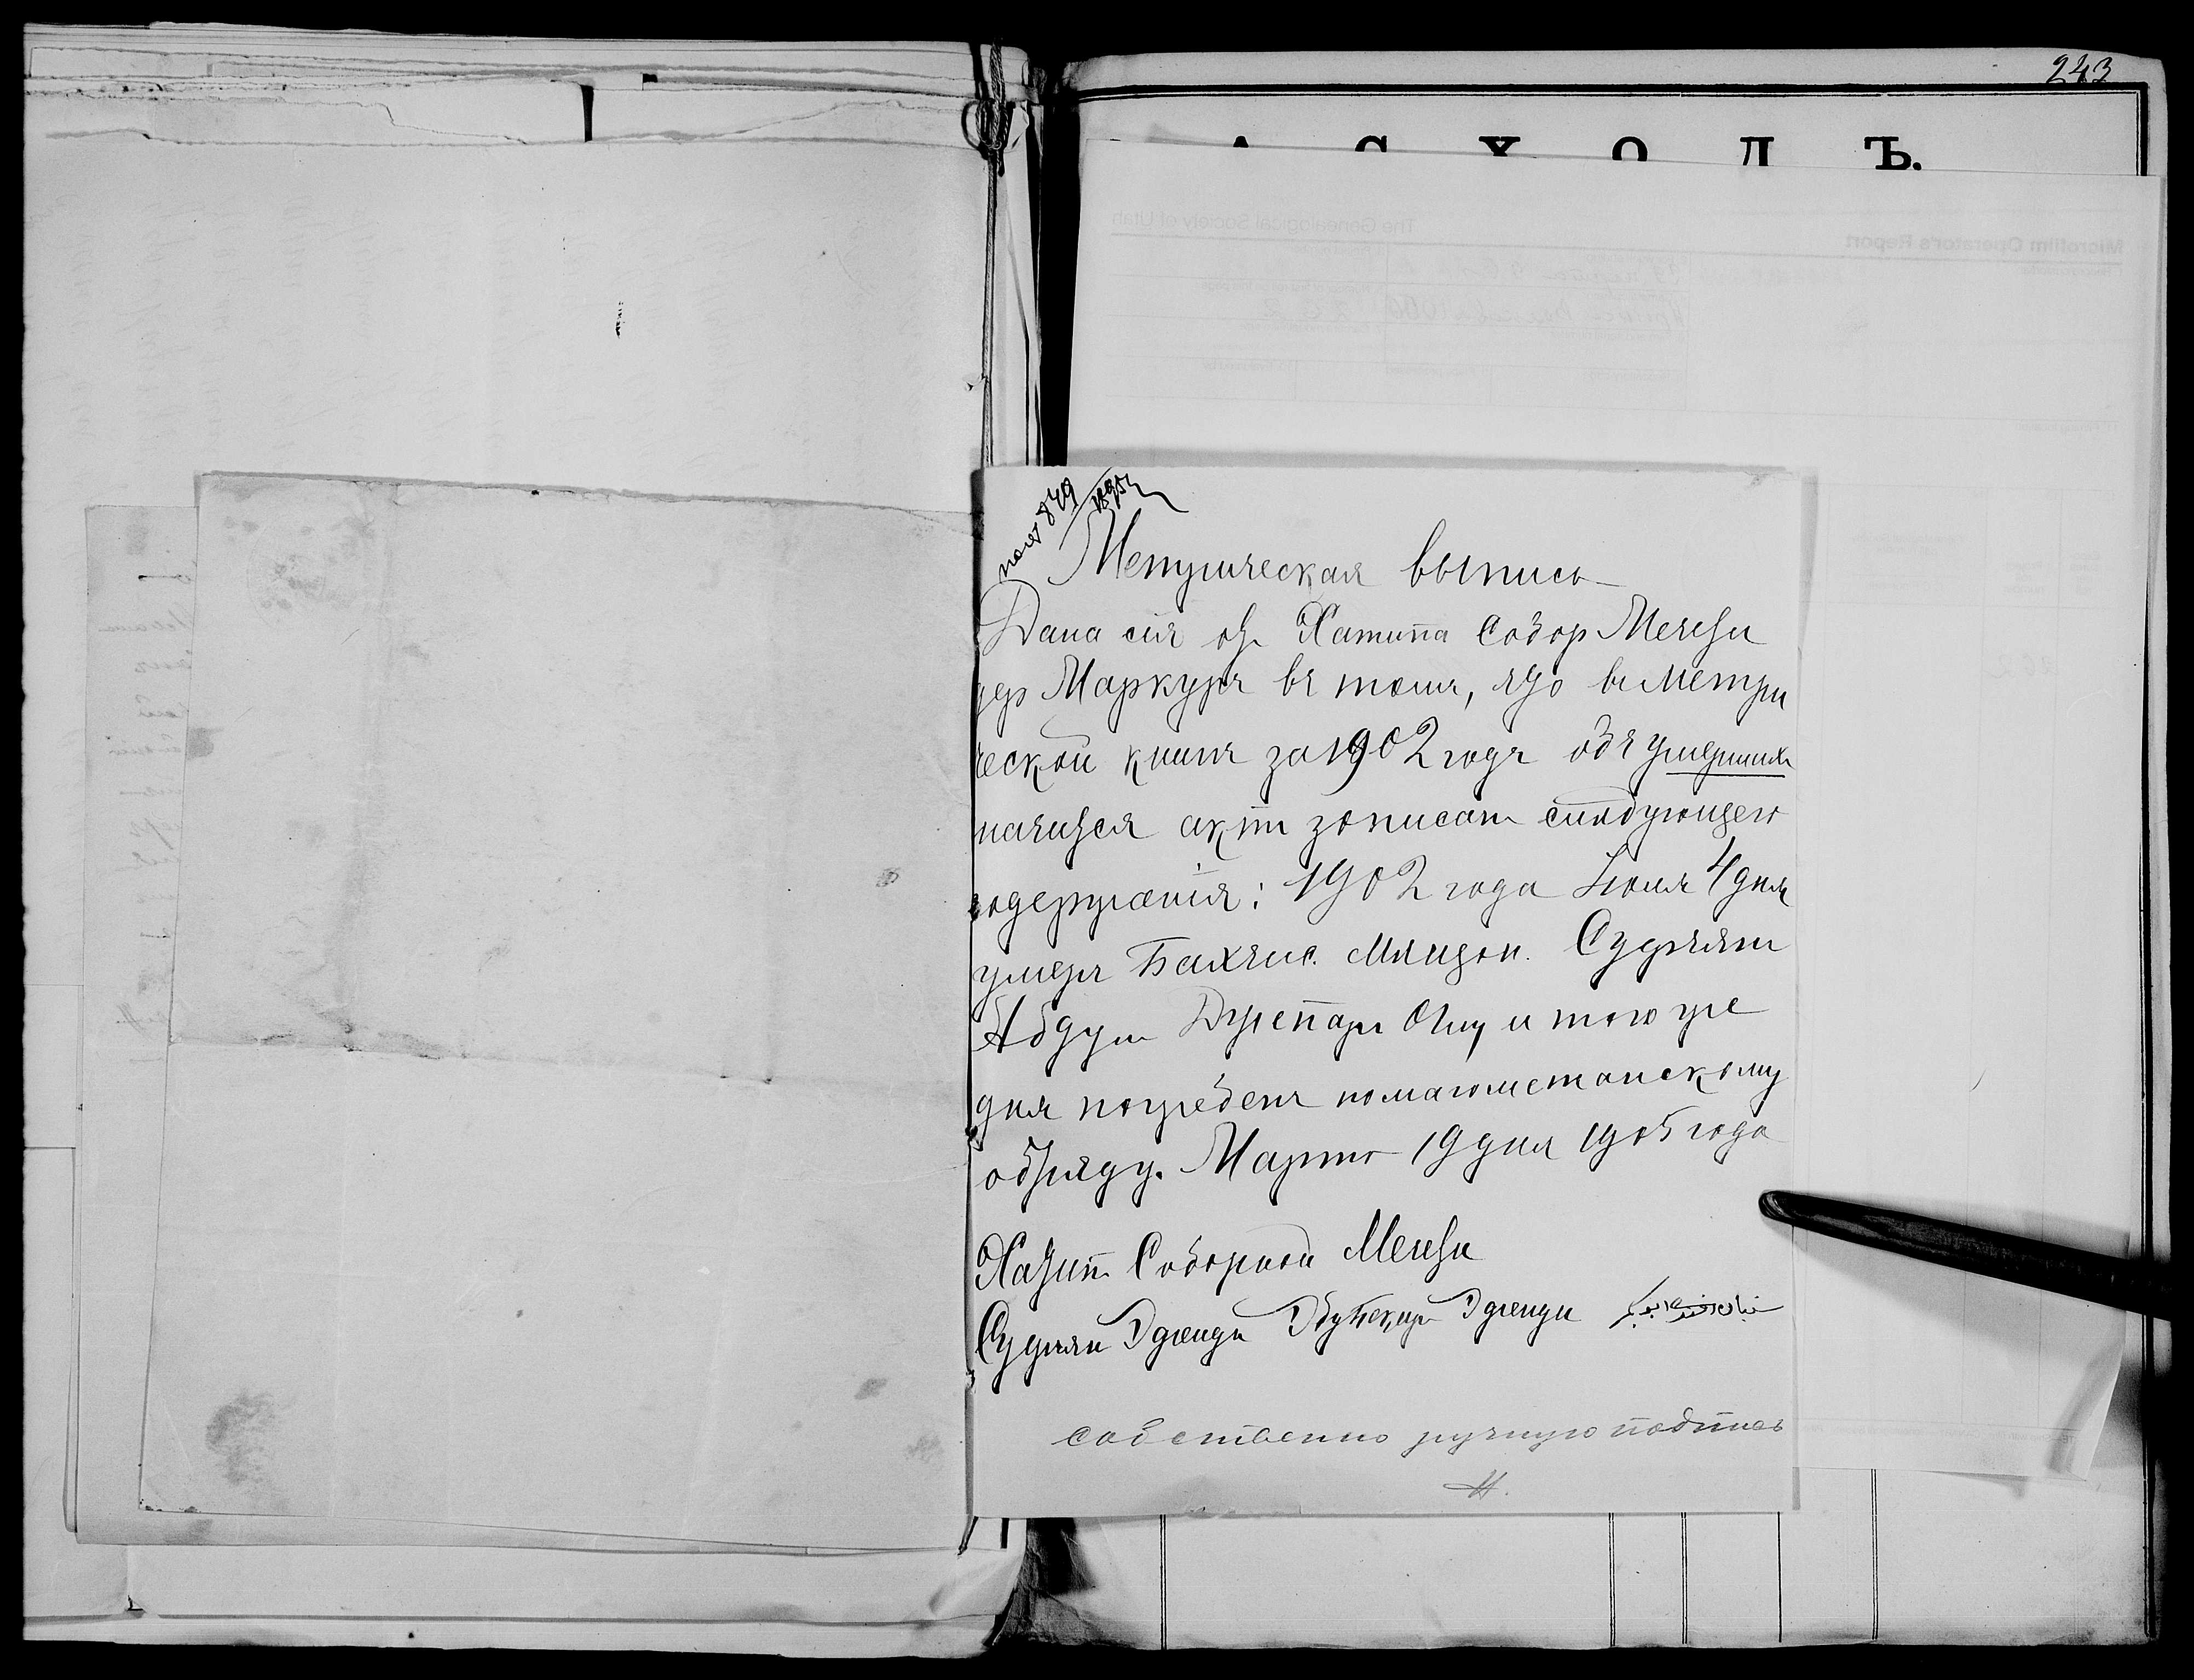 243
АСХОДЪ.
The Genealogical Society of Utah
Microfilm Operator's Report
849
Метрическая выпись
Дана сія отъ Хатипа Собор Мечети
дер Маркуръ въ томъ, что въ Метри
ческой книгѣ за 1902 годъ объ умершихъ
начится актъ записанъ слѣдующего
содержанія: 1902 года Іюля 4 дня
умеръ Бахчис. Мѣщан. Судчянъ
Абдул Джепаръ Оглу и того же
дня погребенъ по магометанскому
обряду. Марта 19 дня 1905 года
Хатипъ Соборной Мечети
Эфенди Эбубекиръ Эфенди
собственно ручную подпись